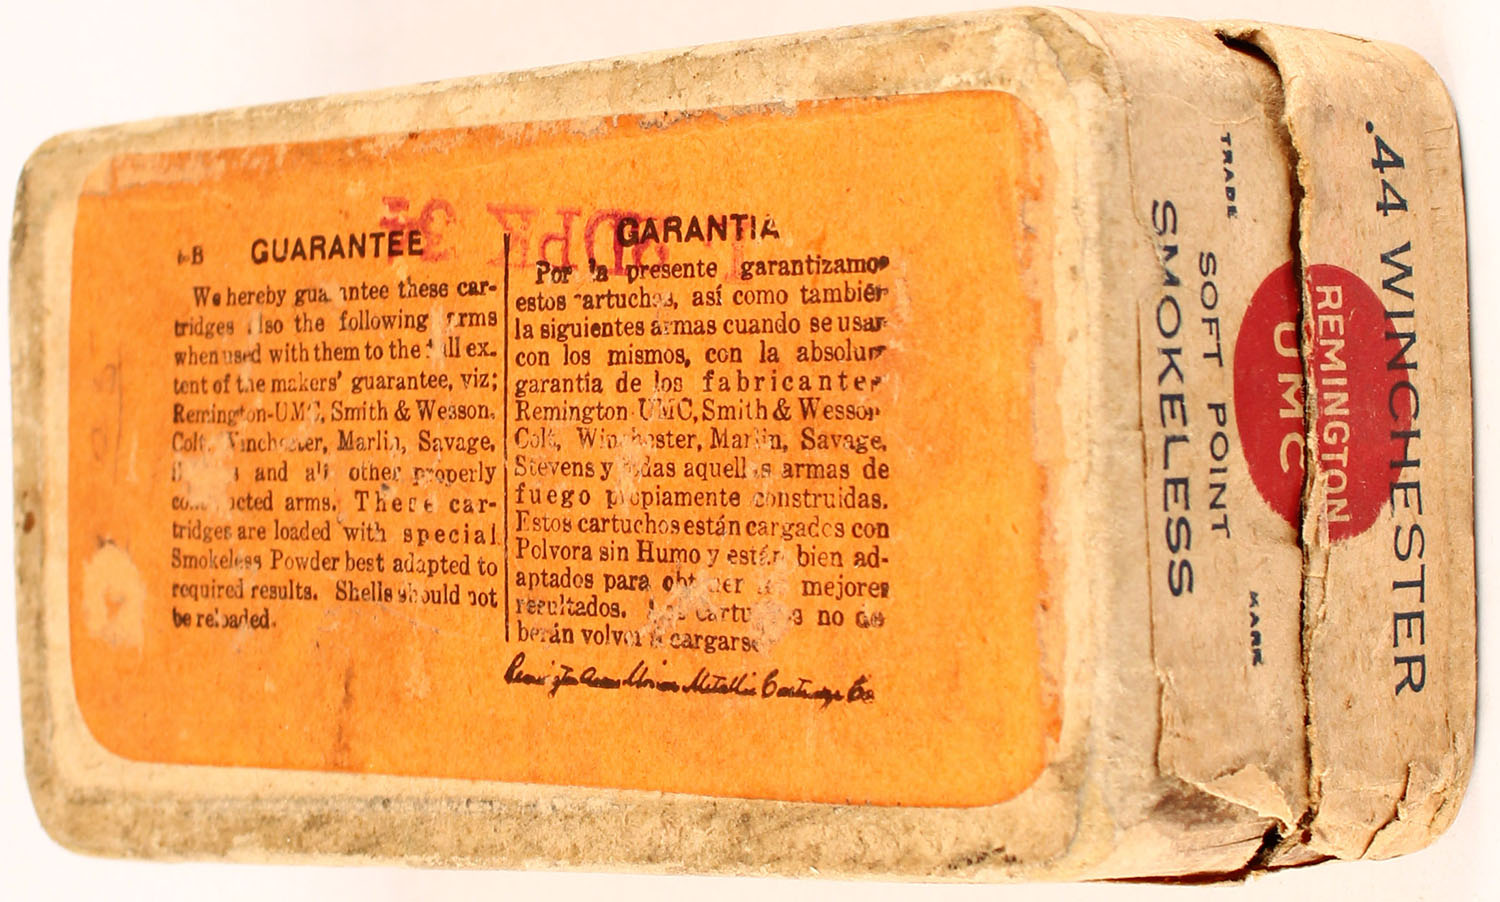 GUARANTEE
We hereby these car-
tridges the following
when used with them to the ex-
tent of the makers' guarantee, viz;
Remington-UMC, Smith & Wesson,
Colt, Winchester, Marlin, Savage,
and all other properly
arms. These car-
tridges are loaded with special
Smokeless Powder best adapted to
required results. Shells should not
be reloaded.
GARANTIA
Por la presente garantizamos
estos cartuchos, así como también
la siguientes armas cuando se usan
con los mismos, con la absoluta
garantia de los fabricantes
Remington UMC, Smith & Wesson
Colt, Winchester, Marlin, Savage,
Stevens y aquellas armas de
fuego propiamente construidas.
Estos cartuchos están cargados con
Polvora sin Humo y están bien ad-
aptados para obtener mejores
resultados. no de
berán volver a cargarse
Remington Arms Union Metallic Cartridge Co
.44 WINCHESTER
REMINGTON
UMC
TRADE MARK
SOFT POINT
SMOKELESS